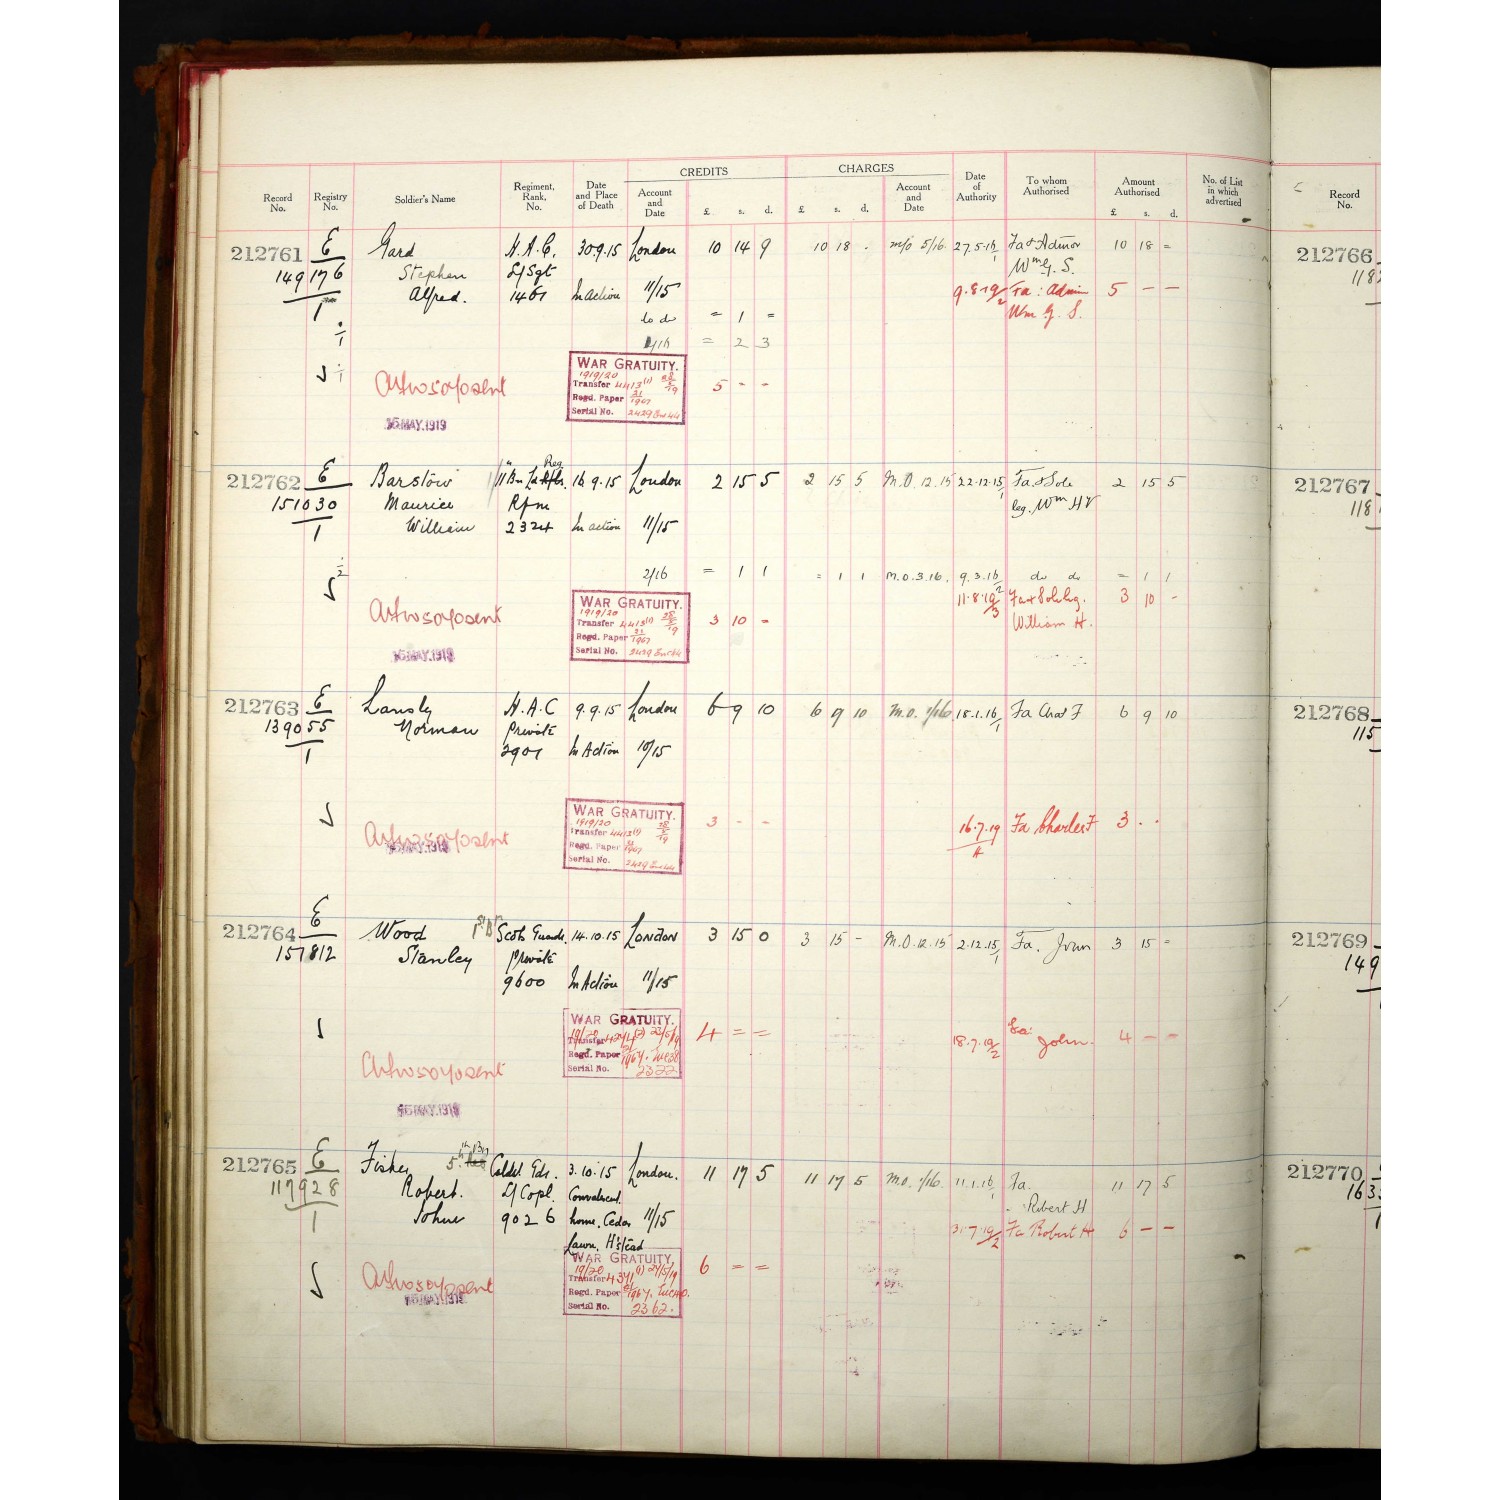 CREDITS CHARGES
Record No. Registry No. Soldier's Name Regiment, Rank, No. Date and Place of Death Account and Date £ s. d. £ s. d. Account and Date Date of Authority To whom Authorised Amount Authorised £ s. d. No. of List in which advertised Record No.
212761 E Gard H.A.C. 30.9.15 London 10 14 9 10 18 - m/o 5/16 27.5.16/1 Fa & Admor 10 18 = 212766
149176 Stephen L/Sgt Wm G. S.
1 Alfred. 1461 In Action 11/15 9.8.19/2 Fa: Admin 5 - -
do do = 1 = Wm G. S.
2/16 = 2 3
WAR GRATUITY.
1919/20
Transfer 4413(1) 28/5/19 5 - -
Regd. Paper 21/1967
Serial No. 2429
15 MAY.1919
212762 E Barstow 11 Bn Reg. 16.9.15 London 2 15 5 2 15 5 M.O.12.15 22.12.15/1 Fa & Sole 2 15 5 212767
151030 Maurice Rfm leg. Wm H
1 William 2324 In action 11/15
2/16 = 1 1 = 1 1 M.O.3.16. 9.3.16/2 do do = 1 1
11.8.19/3 Fa & Sole leg. 3 10 -
William H.
WAR GRATUITY.
1919/20
Transfer 4413(1) 28/5/19 3 10 -
Regd. Paper 21/1967
Serial No. 2429
MAY.1919
212763 E Lansly H.A.C 9.9.15 London 6 9 10 6 9 10 M.O. 1/16 18.1.16/1 Fa Chas F 6 9 10 212768
139055 Norman Private 115
1 2901 In Action 10/15
WAR GRATUITY.
1919/20
Transfer 4413(1) 28/5/19 3 - - 16.7.19 Fa Charles F 3 - -
Regd. Paper 21/1967
Serial No. 2429
212764 E Wood 1st Bn Scots Guards. 14.10.15 London 3 15 0 3 15 - M.O.12.15 2.12.15/1 Fa. John 3 15 = 212769
157812 Stanley Private 149
9600 In Action 11/15
WAR GRATUITY.
19/20
Transfer 4 = = 18.7.19/2 Fa: John. 4 - -
Regd. Paper
Serial No. 2322
212765 E Fisher 5th Coldm. Gds. 3.10.15 London. 11 17 5 11 17 5 M.O. 1/16 11.1.16/1 Fa. 11 17 5 212770
117928 Robert. L/Copl. Convalescent Robert H
1 John 9026 home, Cedar 11/15 31.7.19/2 Fa Robert H 6 - -
Lawn, H'stead
WAR GRATUITY.
19/20
Transfer 6 = =
Regd. Paper
Serial No. 2362.